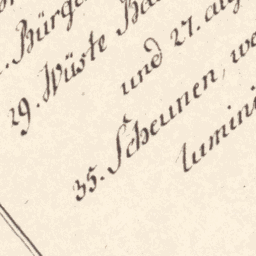 Bürge
29. Wüste
und 27.
35. Scheunen, we
lumini